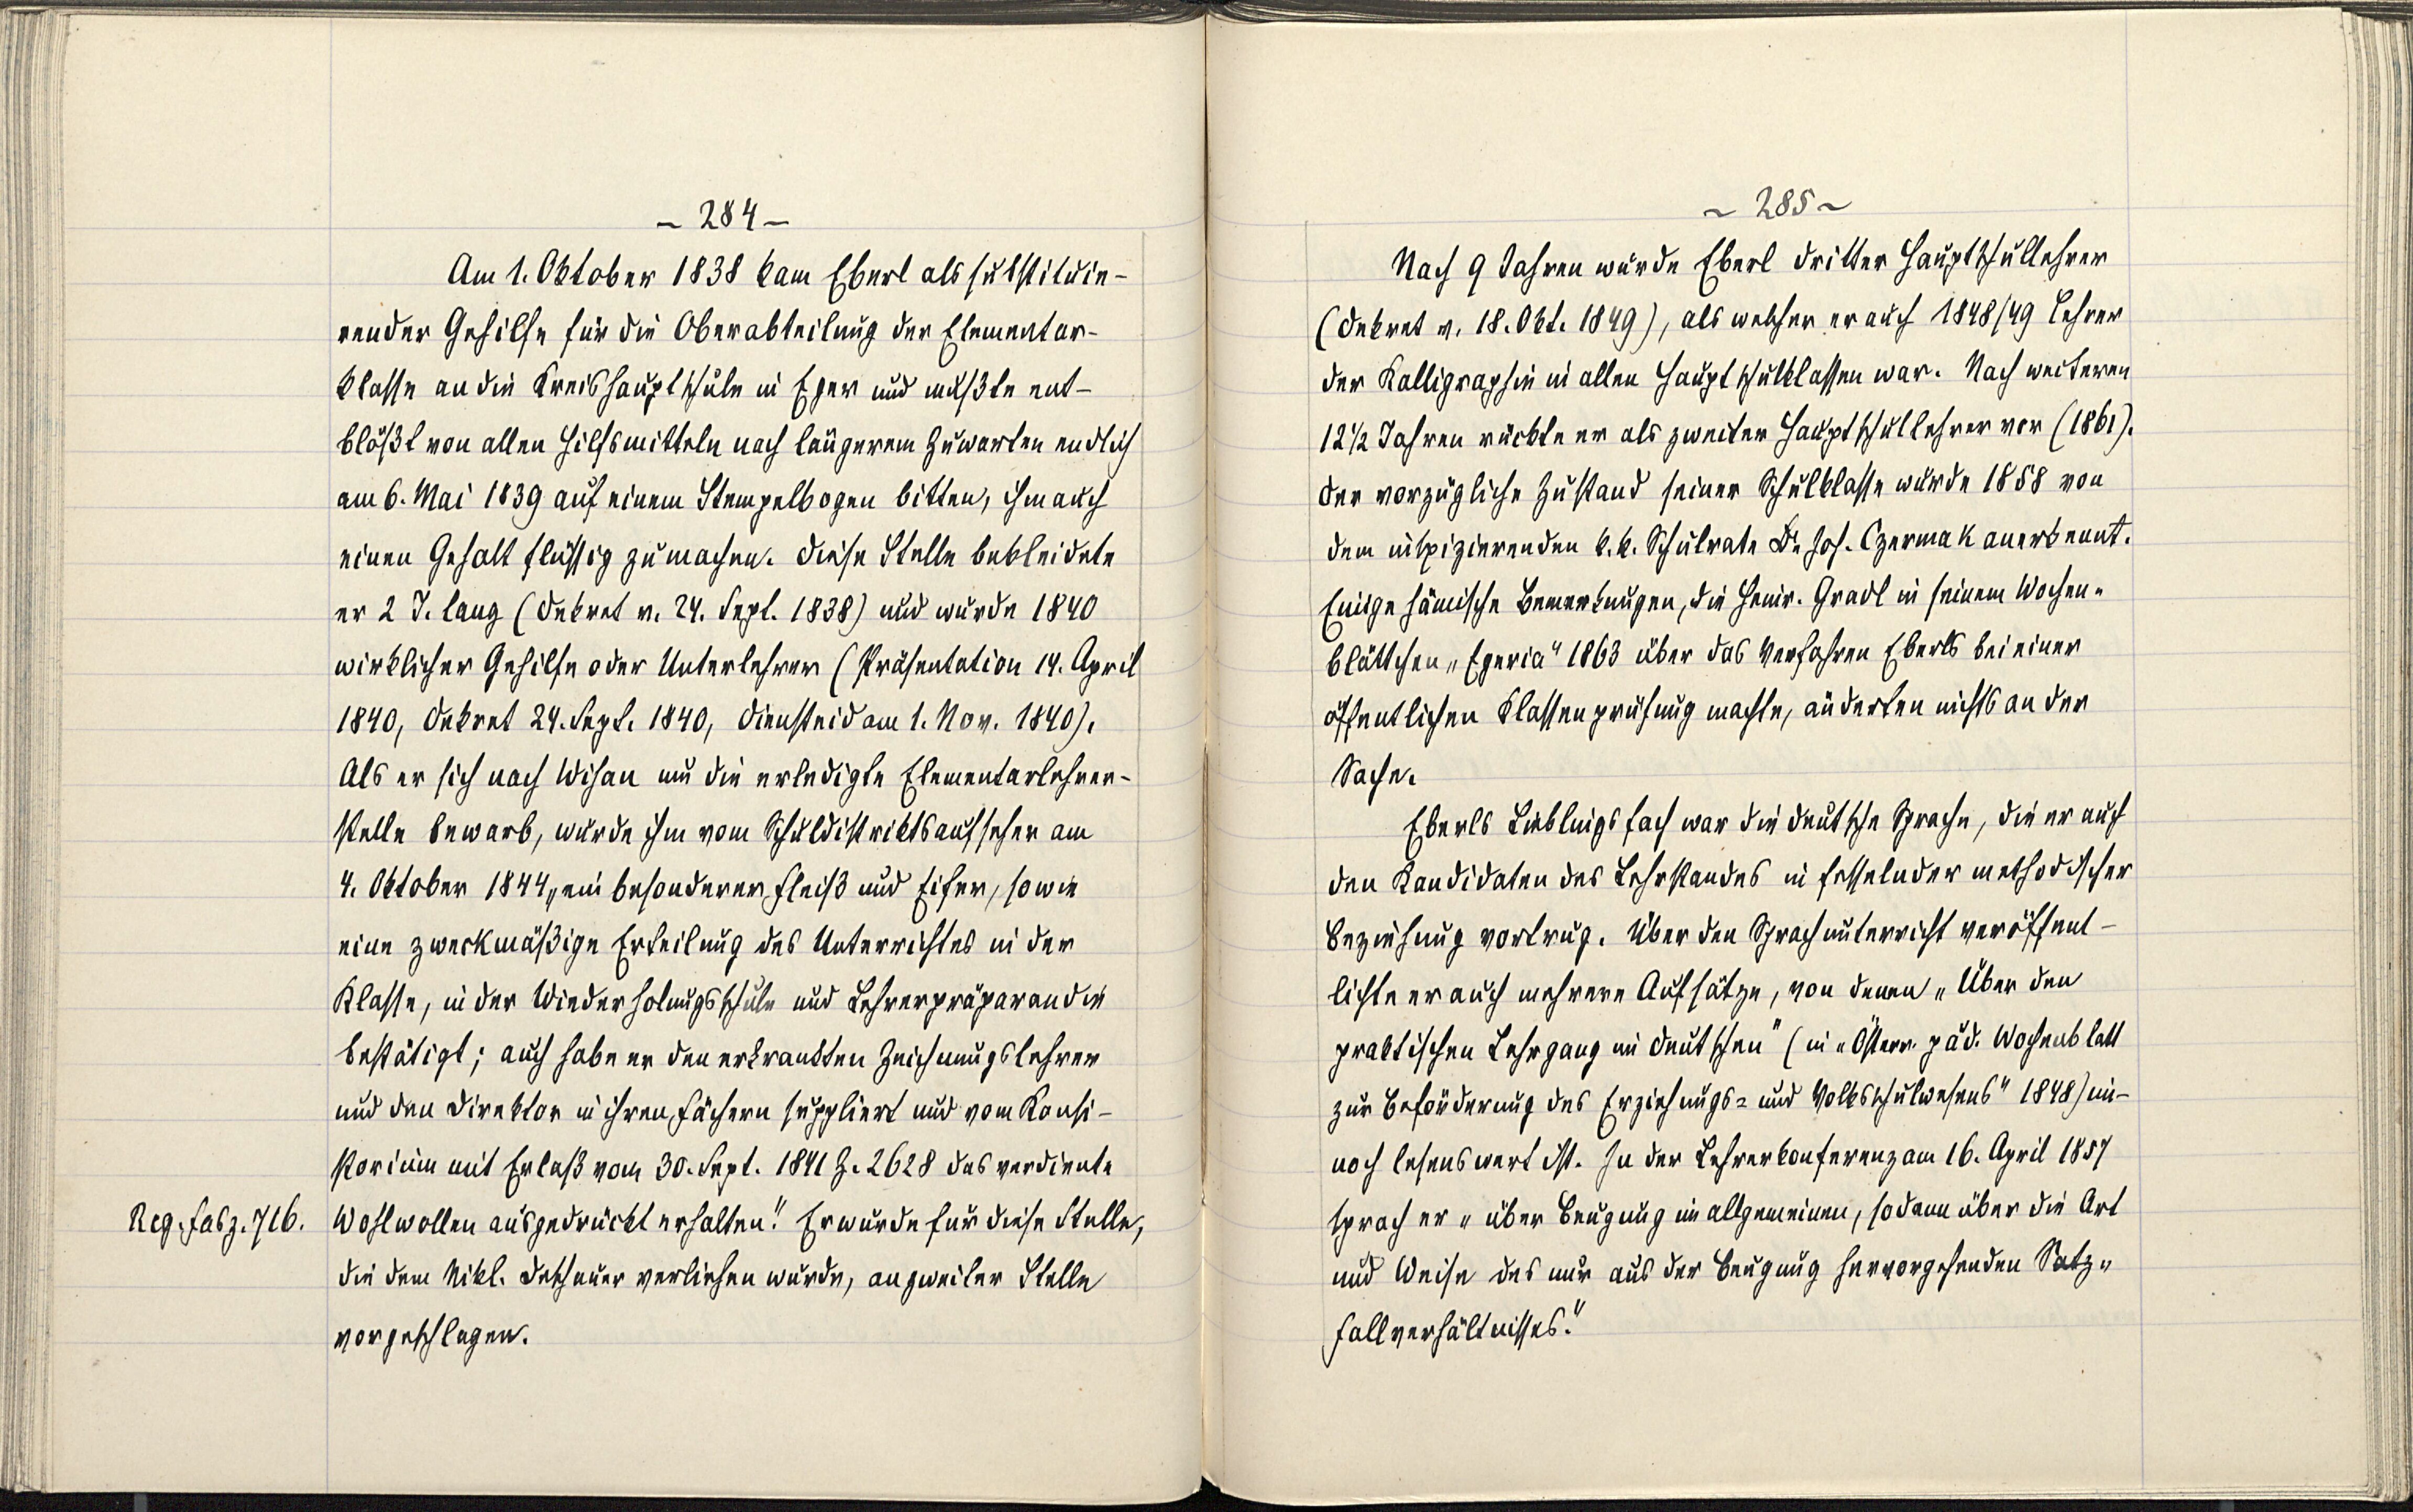 – 284 –
Am 1. Oktober 1838 kam Eberl als substituie-
render Gehilfe für die Oberabteilung der Elementar-
klasse an die Kreishauptschule in Eger und mußte ent-
blößt von allen Hilfsmitteln nach längerem Zuwarten endlich
am 6. Mai 1839 auf einem Stempelbogen bitten, ihm auch
einen Gehalt flüssig zu machen. Diese Stelle bekleidete
er 2 J. lang (Dekret v. 24. Sept. 1838) und wurde 1840
wirklicher Gehilfe oder Unterlehrer (Präsentation 14. April
1840, Dekret 24. Sept. 1840, Diensteid am 1. Nov. 1840).
Als er sich nach Wisau um die erledigte Elementarlehrer-
stelle bewarb, wurde ihm vom Schuldistriktsaufseher am
4. Oktober 1844 „ein besonderer Fleiß und Eifer, sowie
eine zweckmäßige Erteilung des Unterrichtes in der
Klasse, in der Wiederholungsschule und Lehrerpräparandie
bestätigt; auch habe er den erkrankten Zeichnungslehrer
und den Direktor in ihren Fächern suppliert und vom Konsi-
storium mit Erlaß vom 30. Sept. 1841 Z. 2628 das verdiente
Reg. Fasz. 716.
Wohlwollen ausgedrückt erhalten." Er wurde für diese Stelle,
die dem Nikl. verliehen wurde, an zweiter Stelle
vorgeschlagen.
~ 285 ~
Nach 9 Jahren wurde Eberl dritter Hauptschullehrer
(Dekret v. 18. Okt. 1849), als welcher er auch 1848/49 Lehrer
der Kalligraphie in allen Hauptschulklassen war. Nach weiteren
12 1/2 Jahren rückte er als zweiter Hauptschullehrer vor (1861).
Der vorzügliche Zustand seiner Schulklasse wurde 1858 von
dem inspizierenden k. k. Schulrate Dr. Jos. Czermak anerkannt.
Einige hämische Bemerkungen, die Heinr. Gradl in seinem Wochen-
blättchen „Egeria" 1863 über das Verfahren Eberls bei einer
öffentlichen Klassenprüfung machte, änderten nichts an der
Sache.
Eberls Lieblingsfach war die deutsche Sprache, die er auch
den Kandidaten des Lehrstandes in fesselnder methodischer
Beziehung vortrug. Über den Sprachunterricht veröffent-
lichte er auch mehrere Aufsätze, von denen „Über den
praktischen Lehrgang im Deutschen" (in „Österr. päd. Wochenblatt
zur Beförderung des Erziehungs- und Volksschulwesens" 1848) im-
noch lesenswert ist. In der Lehrerkonferenz am 16. April 1857
sprach er „über Beugung im allgemeinen, sodann über die Art
und Weise des nur aus der Beugung hervorgehenden Satz-
fallverhältnisses."